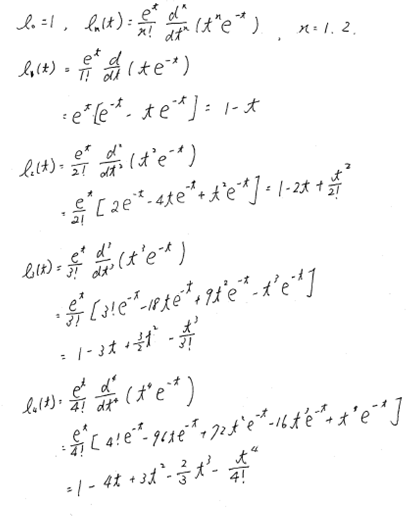 l₀ = 1, lₙ(t) = eᵗ/n! dⁿ/dtⁿ (tⁿe⁻ᵗ), n = 1. 2.
l₁(t) = eᵗ/1! d/dt (te⁻ᵗ)
= eᵗ[e⁻ᵗ - te⁻ᵗ] = 1 - t
l₂(t) = eᵗ/2! d²/dt² (t²e⁻ᵗ)
= eᵗ/2! [2e⁻ᵗ - 4te⁻ᵗ + t²e⁻ᵗ] = 1 - 2t + t²/2!
l₃(t) = eᵗ/3! d³/dt³ (t³e⁻ᵗ)
= eᵗ/3! [3!e⁻ᵗ - 18te⁻ᵗ + 9t²e⁻ᵗ - t³e⁻ᵗ]
= 1 - 3t + 3/2 t² - t³/3!
l₄(t) = eᵗ/4! d⁴/dt⁴ (t⁴e⁻ᵗ)
= eᵗ/4! [4!e⁻ᵗ - 96te⁻ᵗ + 72t²e⁻ᵗ - 16t³e⁻ᵗ + t⁴e⁻ᵗ]
= 1 - 4t + 3t² - 2/3 t³ - t⁴/4!